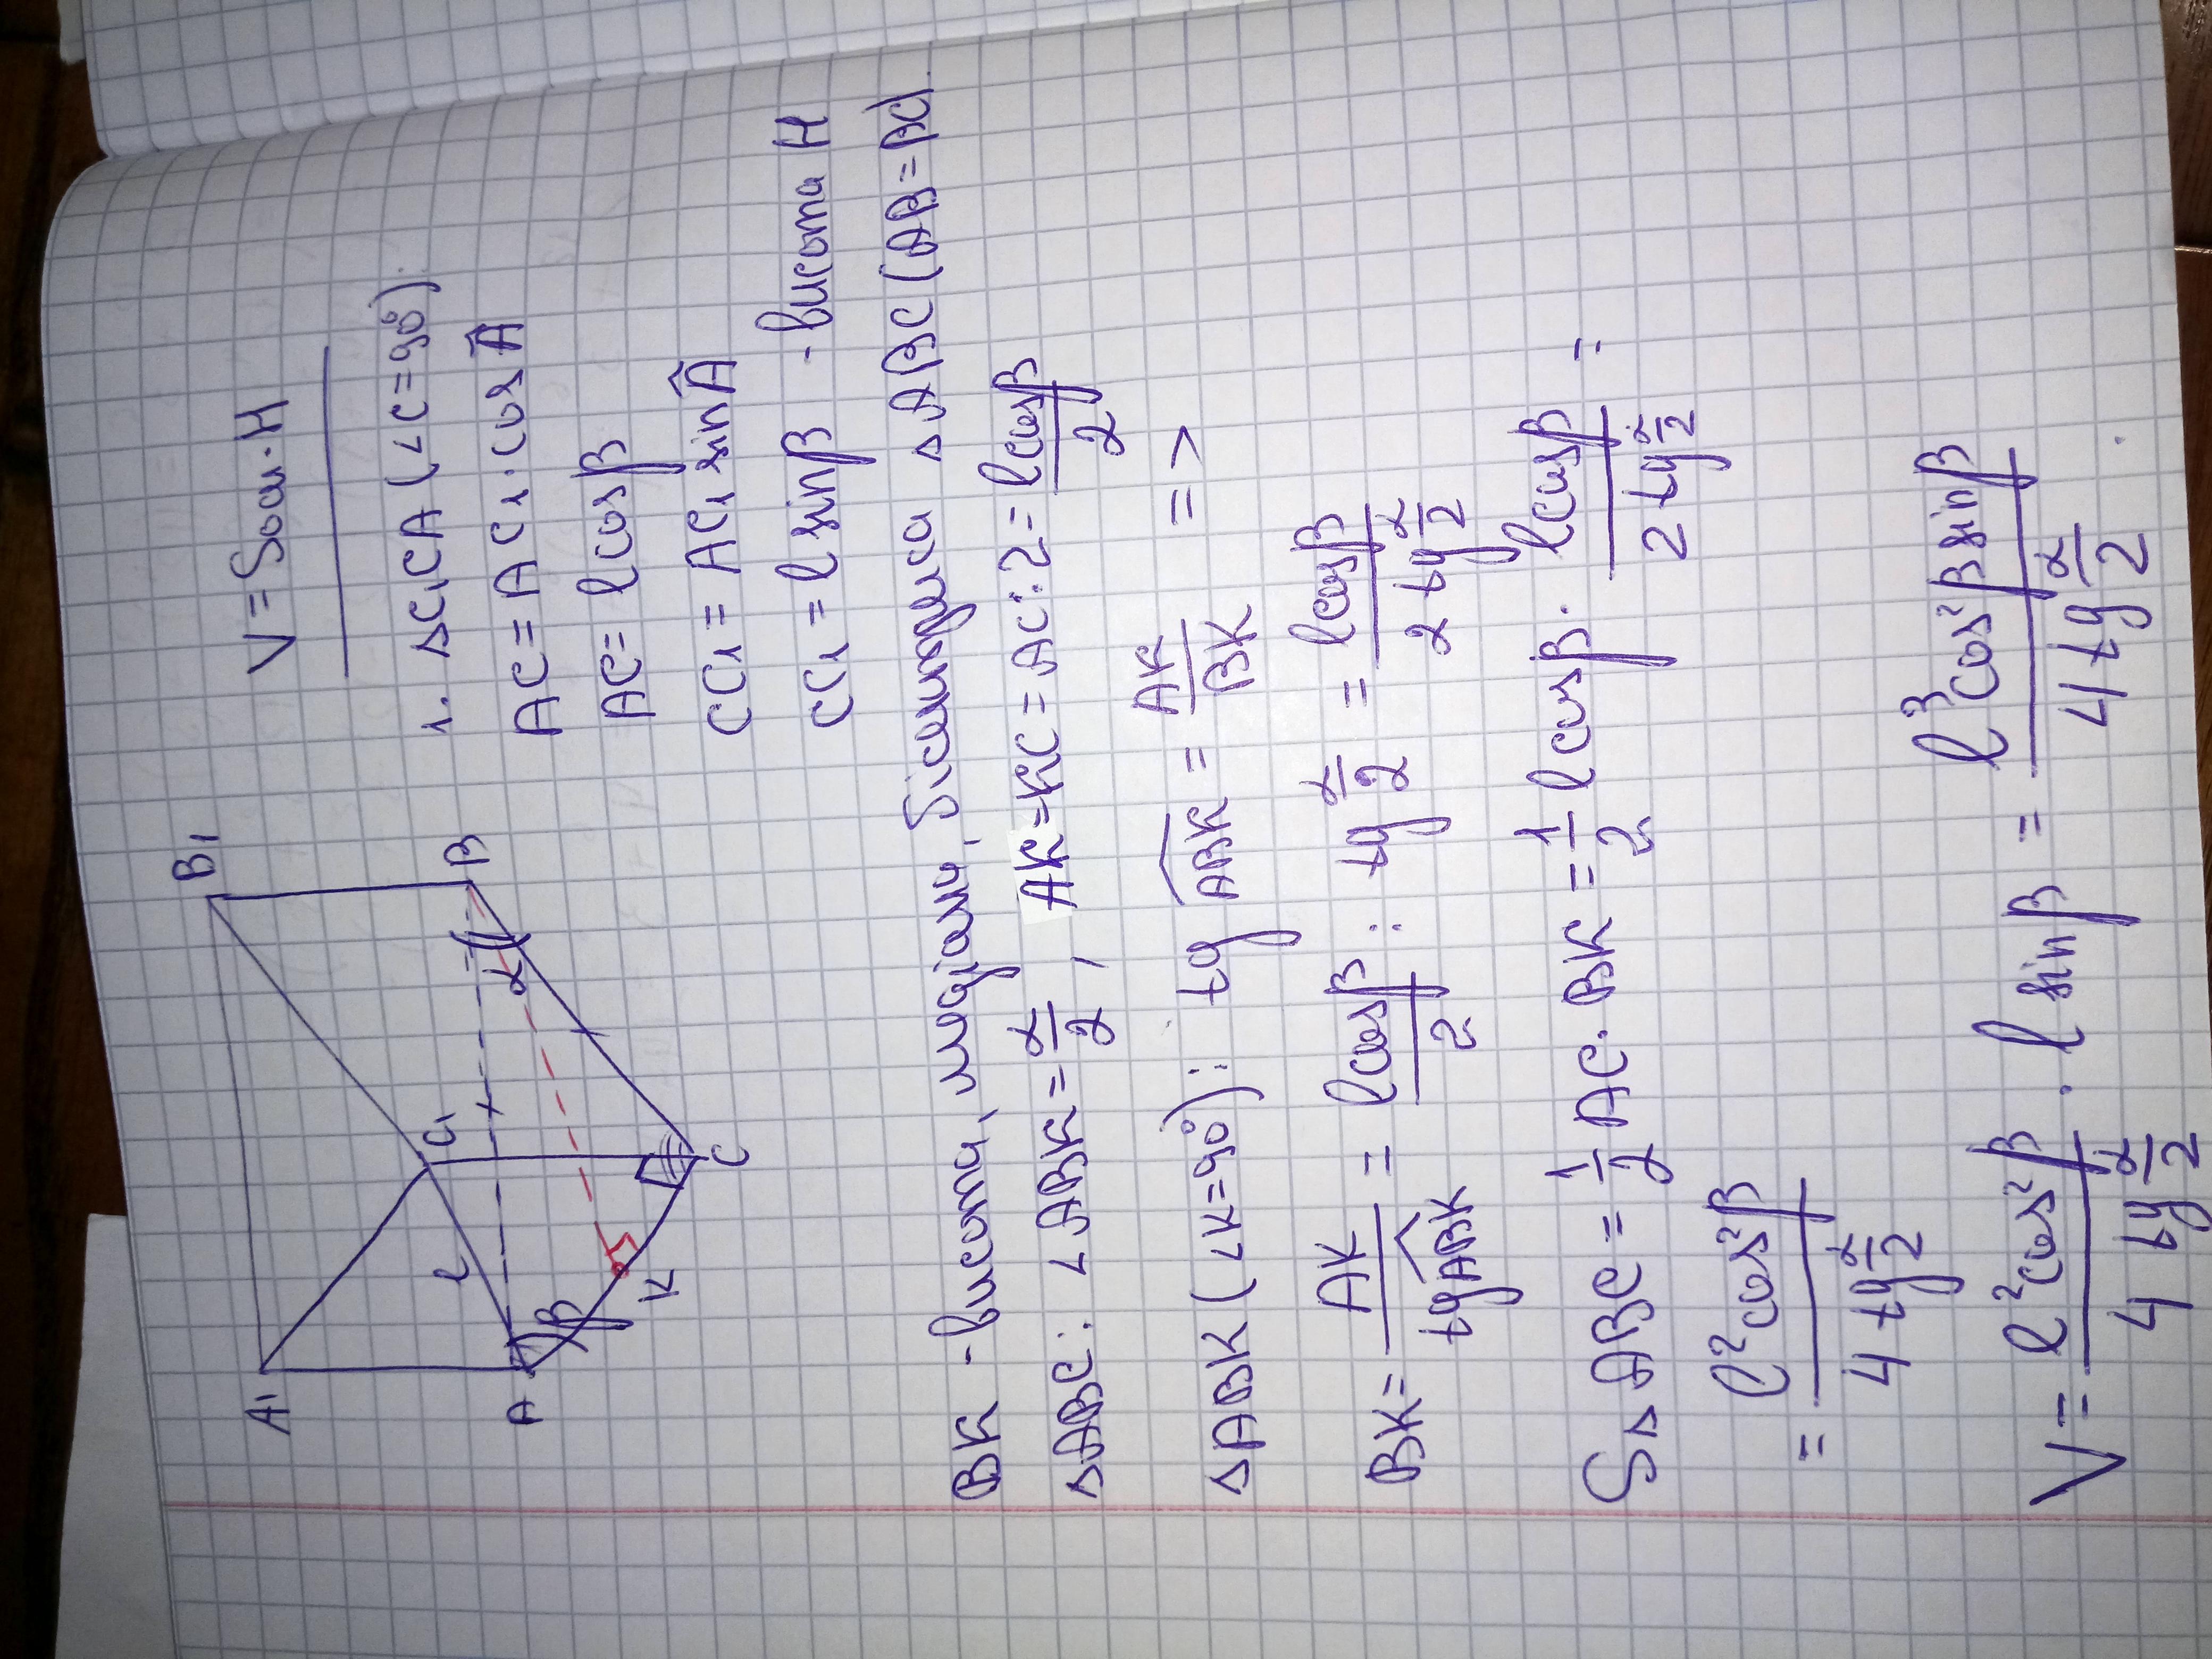 V = Sосн · H
1. △C₁CA (∠C=90°).
AC = AC₁ · cos Â
AC = l cosβ
CC₁ = AC₁ sin Â
CC₁ = l sinβ - висота H
BK - висота, медіана, бісектриса △ABC (AB=BC).
△ABC: ∠ABK = α/2, AK=KC=AC:2 = lcosβ/2
△ABK (∠K=90°): tg ABK̂ = AK/BK =>
BK = AK/tgABK̂ = lcosβ/2 : tg α/2 = lcosβ/2 tg α/2
S△ABC = 1/2 AC · BK = 1/2 l cosβ · lcosβ/2 tg α/2 =
= l²cos²β/4 tg α/2
V = l²cos²β/4 tg α/2 · l sinβ = l³cos²β sinβ/4 tg α/2 .
A₁
B₁
C₁
A
B
C
K
L
α
β